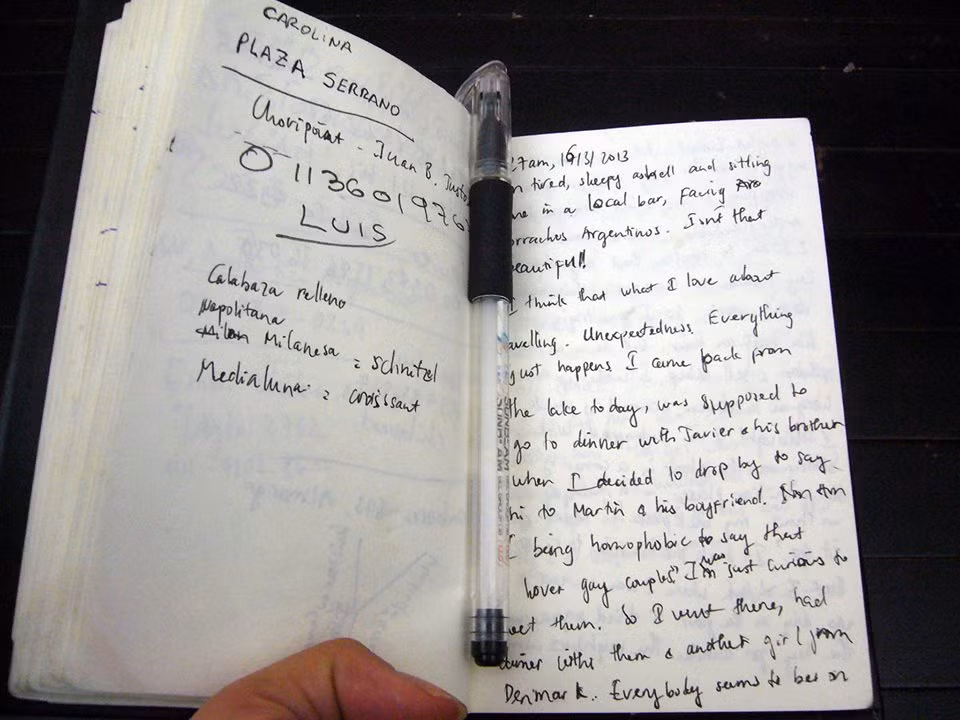 CAROLINA
PLAZA SERRANO
Choripán - Juan B. Justo
113601976
LUIS
Calabaza relleno
Napolitana
Milanesa = schnitzel
Medialuna = croissant
7am, 16/3/2013
tired, sleepy and sitting
in a local bar, facing
orrachos Argentinos. Isnt that
eautiful!!
I think that what I love about
avelling. Unexpectedness Everything
just happens I came back from
the lake today, was supposed to
go to dinner with Javier & his brother
when I decided to drop by to say
hi to Martin & his boyfriend.
I being homophobic to say that
hover gay couples" I was just curious to
eet them. So I went there, had
inner with them & another girl from
Denmark. Everybody seems to be on
SUNBEAM